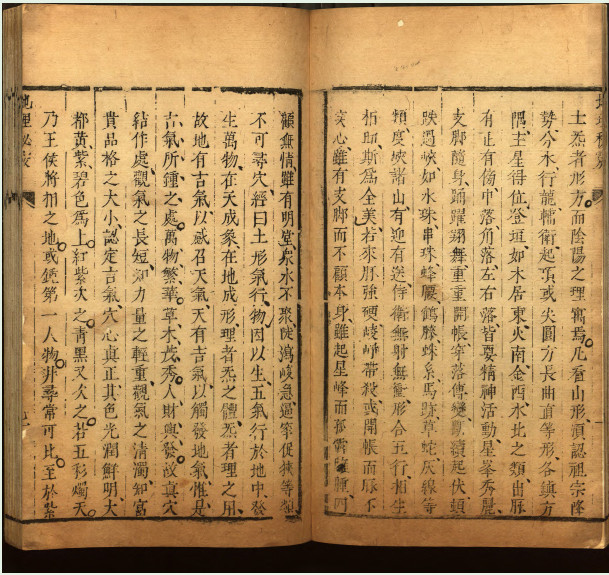 土炁者形方而陰陽之理寓焉凡看山形須認祖宗降
勢今水行龍幡衛起頂或尖圓方長曲直等形各鎮方
隅主星得位登垣如木居東火南金西水北之類出脉
有正有傷中落角落左右落皆要精神活動星峯秀麗
支脚隨身踴躍翔舞重重開帳穿落傳變斷續起伏頓
跌過峽如水珠串珠蜂腰鶴膝蛛糸馬跡草蛇灰線等
類度峽諸山有迎有送侍衛無射無衝形合五行相生
相助斯爲全美若來脉強硬崚嶒帶殺或開帳而脉不
穿心雖有支脚而不顧本身雖起星峰而四
顧無情雖有明堂衆水不聚陡瀉峻急逼窄促狹等類
不可尋穴經曰土形氣行物因以生五氣行於地中發
生萬物在天成象在地成形理者炁之體炁者理之用
故地有吉氣以感召天氣天有吉氣以觸發地氣惟是
吉氣所鍾之處萬物繁華草木茂秀人財興發故真穴
結作處觀氣之長短知力量之輕重觀氣之清濁知富
貴品格之大小認定吉氣穴心真正其色光潤鮮明大
都黃紫碧色爲上紅紫次之青黑又次之若五彩燭天
乃王侯將相之地或第一人物非尋常可比至於紫
地理